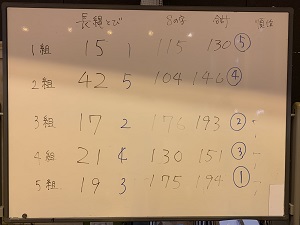 長縄とび 8の字 合計 順位
1組 15 1 115 130 ⑤
2組 42 5 104 146 ④
3組 17 2 176 193 ②
4組 21 4 130 151 ③
5組 19 3 175 194 ①